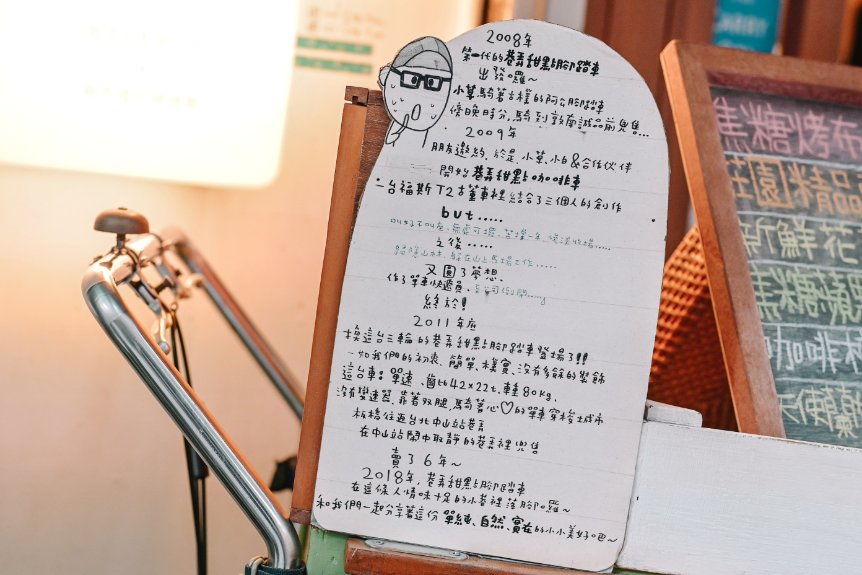 2008年
第一代的巷弄甜點腳踏車
出發囉~
小草騎著古樣的阿公腳踏車
傍晚時分,騎到敦南誠品前兜售...
2009年
朋友邀約、於是、小草、小白&合作伙伴
開始巷弄甜點咖啡車
一台福斯T2古董車裡 結合了三個人的創作
but.....
之後.....
歸隱山林、躲在山上馬場工作.....
又圓了夢想.
作了單車快遞員、
終於!
2011年底
換這台三輪的巷弄甜點腳踏車登場了!!!
一如我們的初衷、簡單、樸實、沒有多餘的裝飾
這台車:單速、齒比42×22t.車重80kg.
沒有變速器、靠著双腿,騎著心♡的單車穿梭城市
板橋往返台北中山站巷弄
在中山站鬧中取靜的巷弄裡兜售
賣了6年~
2018年,巷弄甜點腳踏車
在這條人情味十足的小巷裡落腳囉~
和我們一起分享著這份 單純、自然、實在的小小美好吧~
焦糖烤布
莊園精品
新鮮花
焦糖蘋
咖啡
天使